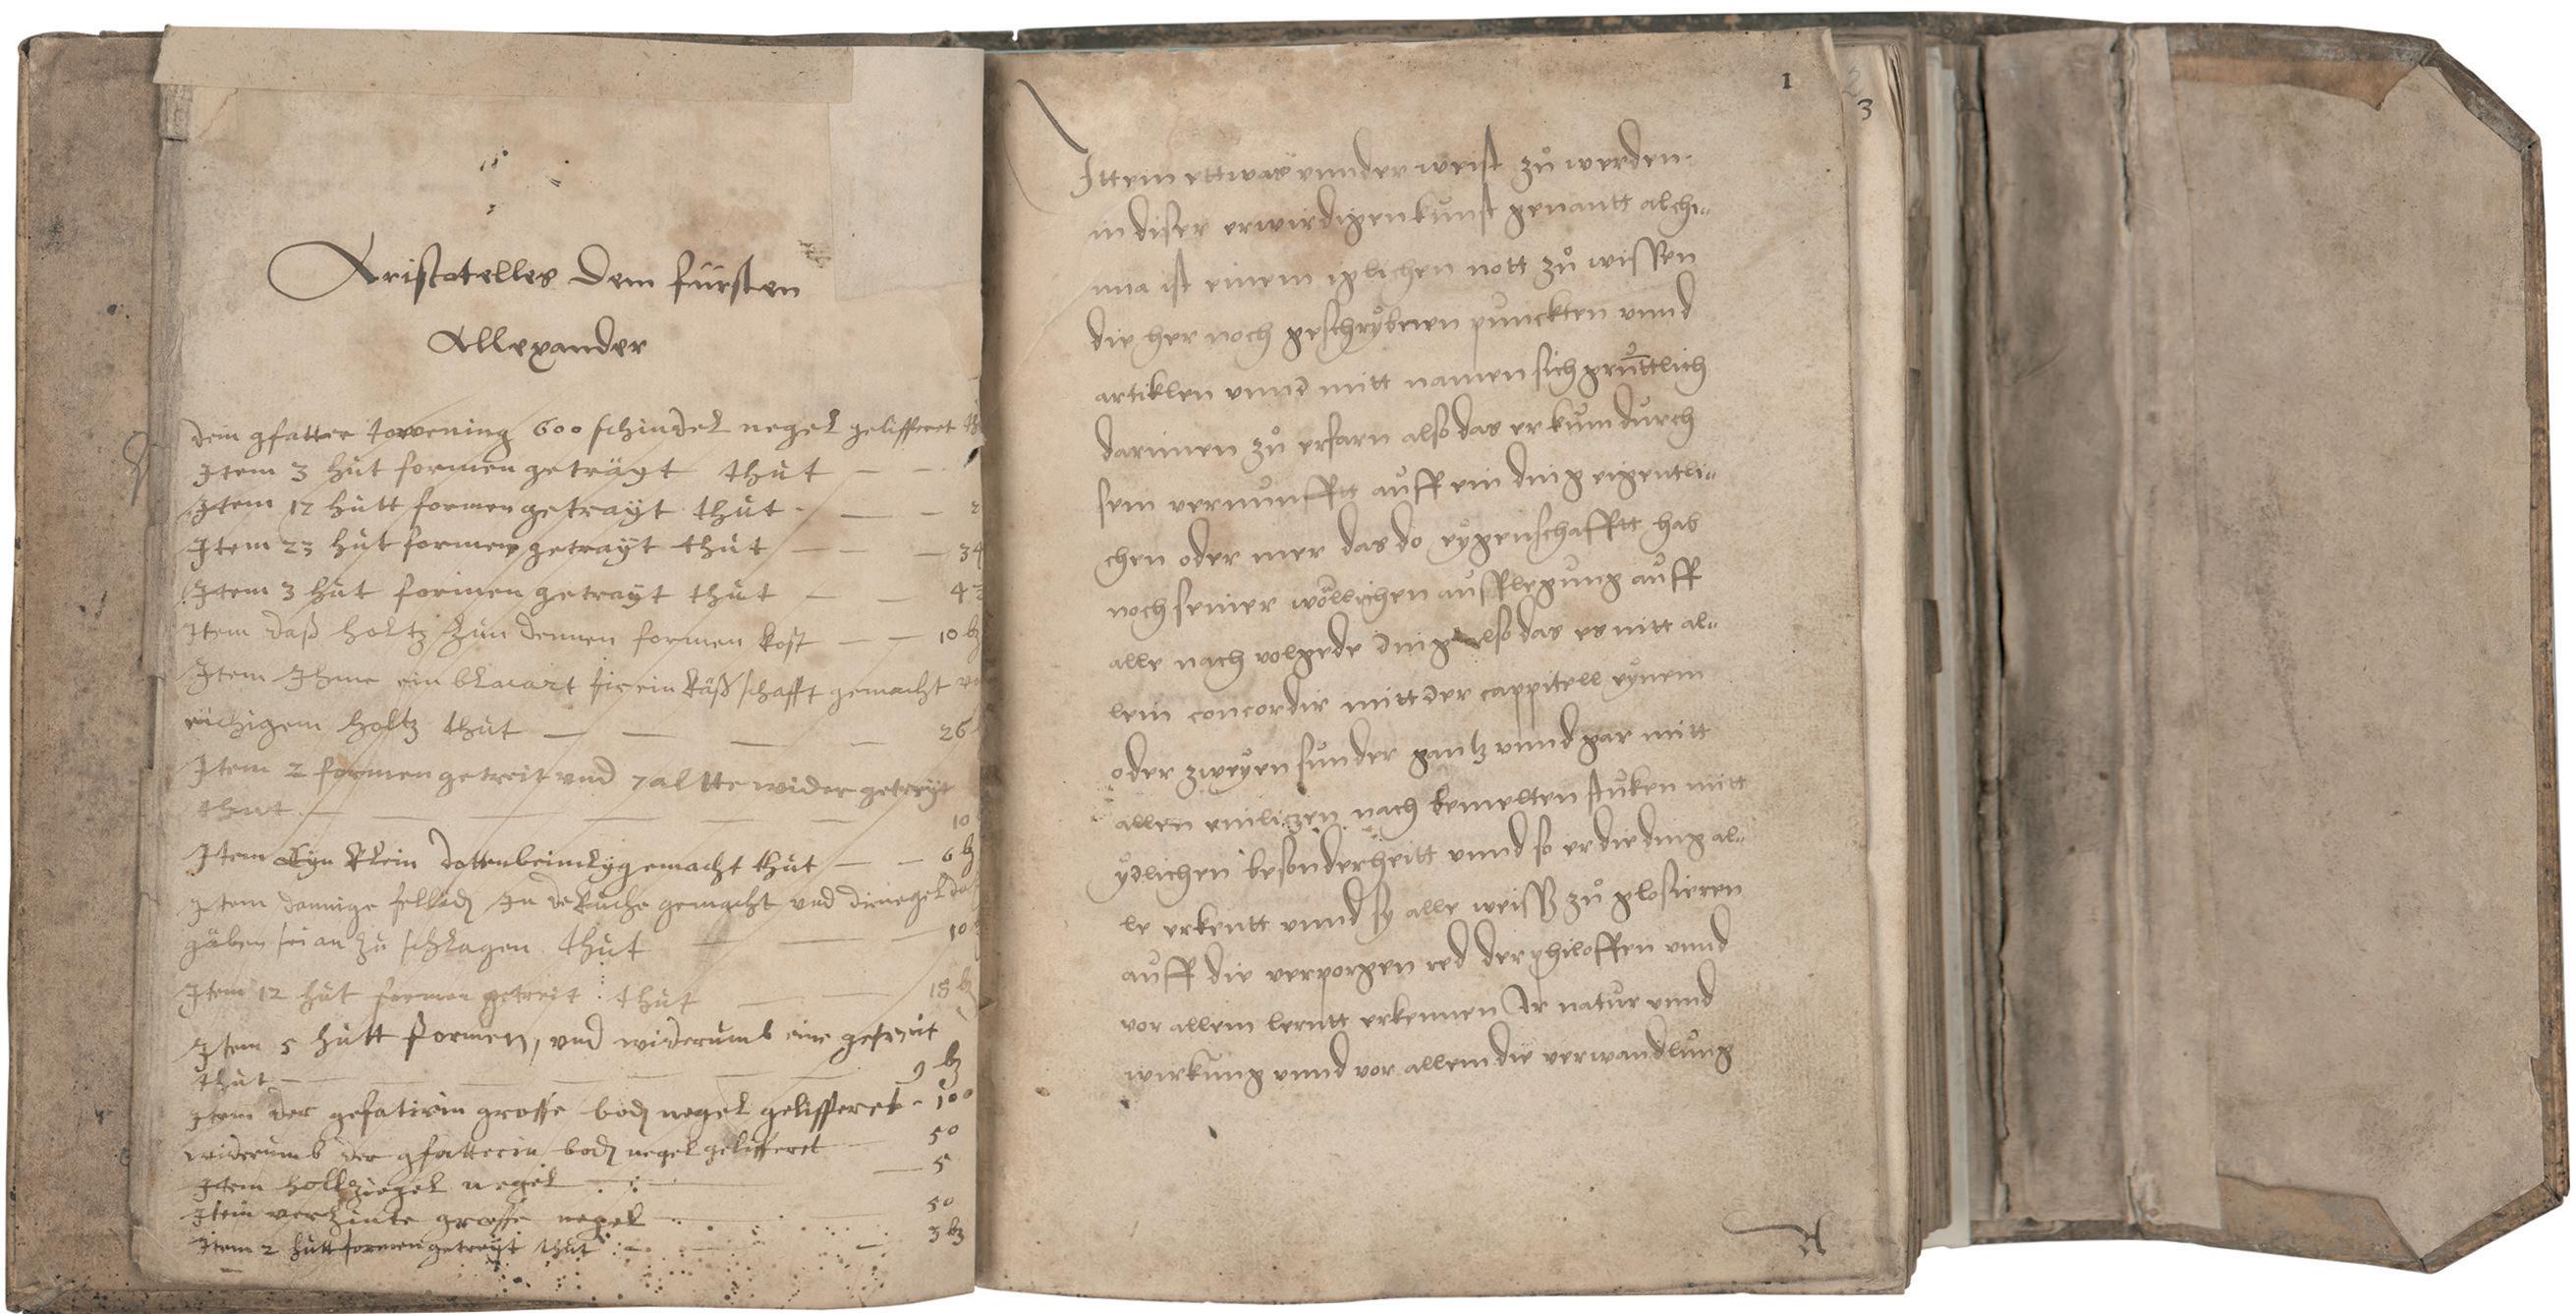 Aristotelles dem fürsten
Allexander
dem gfatter 600 schindel negel gelifferet
Item 3 hut formen geträyt thut — —
Item 17 hutt formen getrayt thut — —
Item 23 hut formen getrayt thut — — 34
Item 3 hut formen getrayt thut — — 4
Item daß holtz zun dennen formen kost — — 10 bz
Item Ihme ein für ein käß schafft gemacht
eichigem holtz thut — — — — 26
Item 2 formen getreit und 7 altte wider getreyt
thut — — — — — — 10
Item klein gemacht thut — — 6 bz
Item gemacht und die negel
gäben sei an zu schlagen thut — — — 10
Item 12 hut formen getreit thut — — 18 bz
Item 5 hutt formen, und widerumb eine getreit
thut — — — — — 9 bz
Item der gefatirin grosse bodn negel gelifferet - 100
widerumb der gfatterin bodn negel gelifferet 50
Item hollziegel negel — 5
Item verzinte grosse negel — 50
Item 2 hutt formen getreyt thut — 3 bz
1
2
3
Ittem ettwas vnnderweist zů werden
in diser erwirdigen kunst genantt alchi„
mia ist einem iglichen nott zů wissen
die her noch geschrybenen punckten vnnd
artiklen vnnd mitt namen sich gruttlich
darinnen zů erfarn also das er kum durch
sein vernunfftt auff ein ding eigentli„
chen oder mer das do eygenschafftt hab
noch seiner wöllichen ausslegung auff
alle nach volgede ding also das es nitt al„
lein concordir mitt der cappitell eynem
oder zweyen sunder gantz vnnd gar mitt
allen einliczen nach bemelten stuken mitt
ydlichen besonderheitt vnnd so er die ding al„
le erkentt vnnd sy alle weiss zů glosieren
auff die verporgen red der philossen vnnd
vor allem lerntt erkennen Ir natur vnnd
wirkung vnnd vor allem die verwandlung